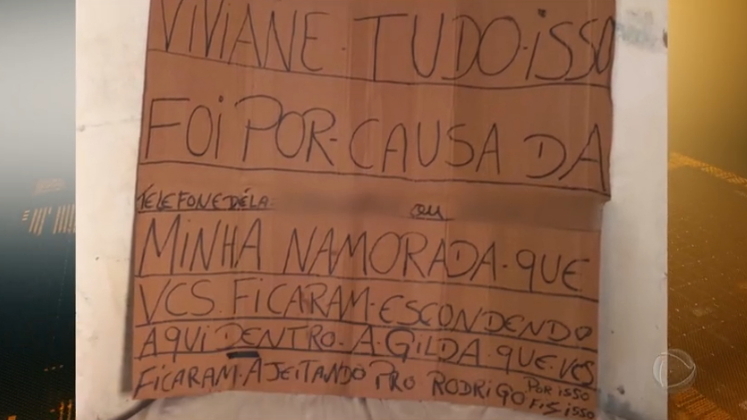 VIVIANE. TUDO. ISSO
FOI POR. CAUSA DA
TELEFONE DÉLA: ou
MINHA NAMORADA. QUE
VCS. FICARAM. ESCONDENDO
AQUI DENTRO. A GILDA. QUE. VCS
FICARAM. AJEITANDO PRO RODRIGO POR ISSO
FIS ISSO